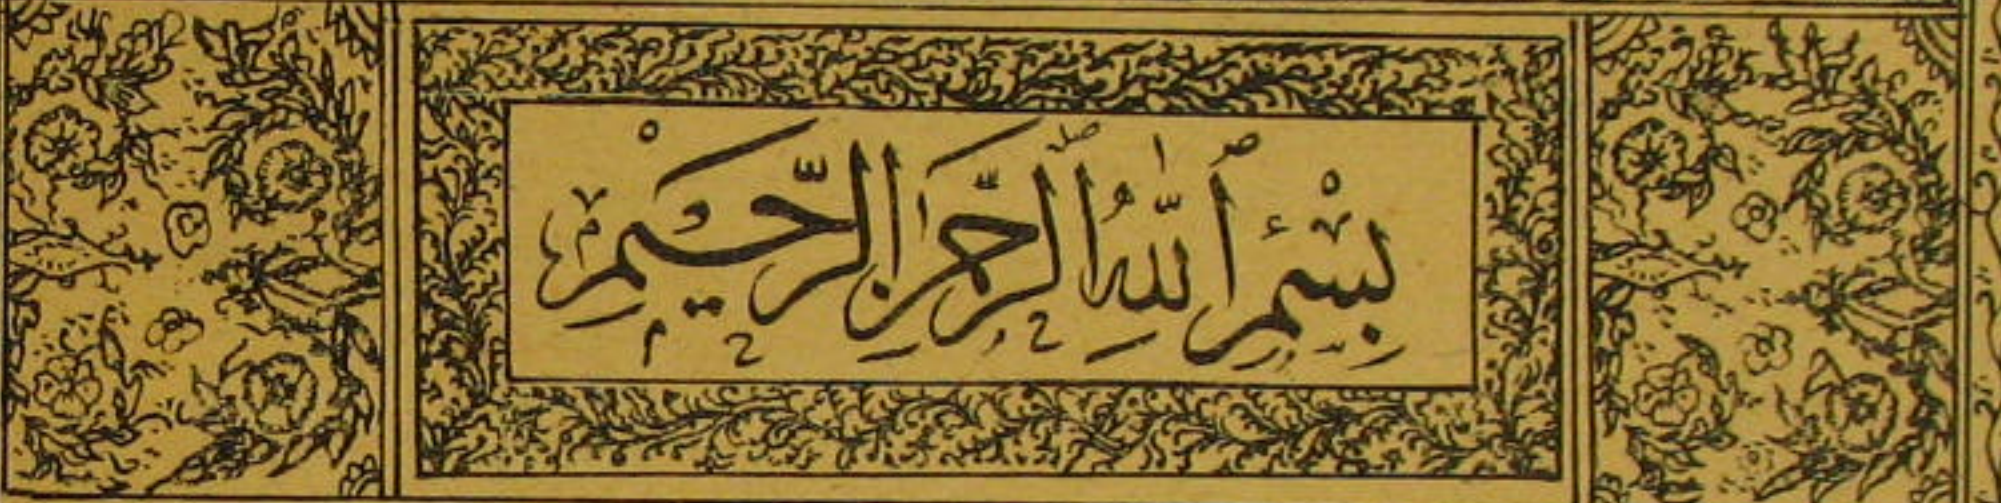 بِسْمِ ٱللّٰهِ الرَّحْمٰنِ الرَّحِيْمِ